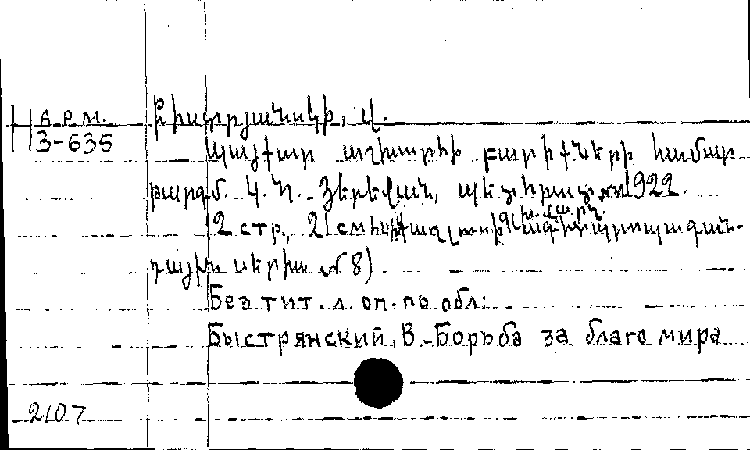 А.Р.М. Բիստրյանսկի, Վ.
3-635
Պայքար աշխարհի բարիքների համար
թարգմ. Կ. Ղ. Յերեվան, պետհրատ, 1922.
12 стр., 21 см.
սերիա № 8)
Без тит. л. оп. по обл.
Быстрянский, В. - Борьба за благо мира
2107